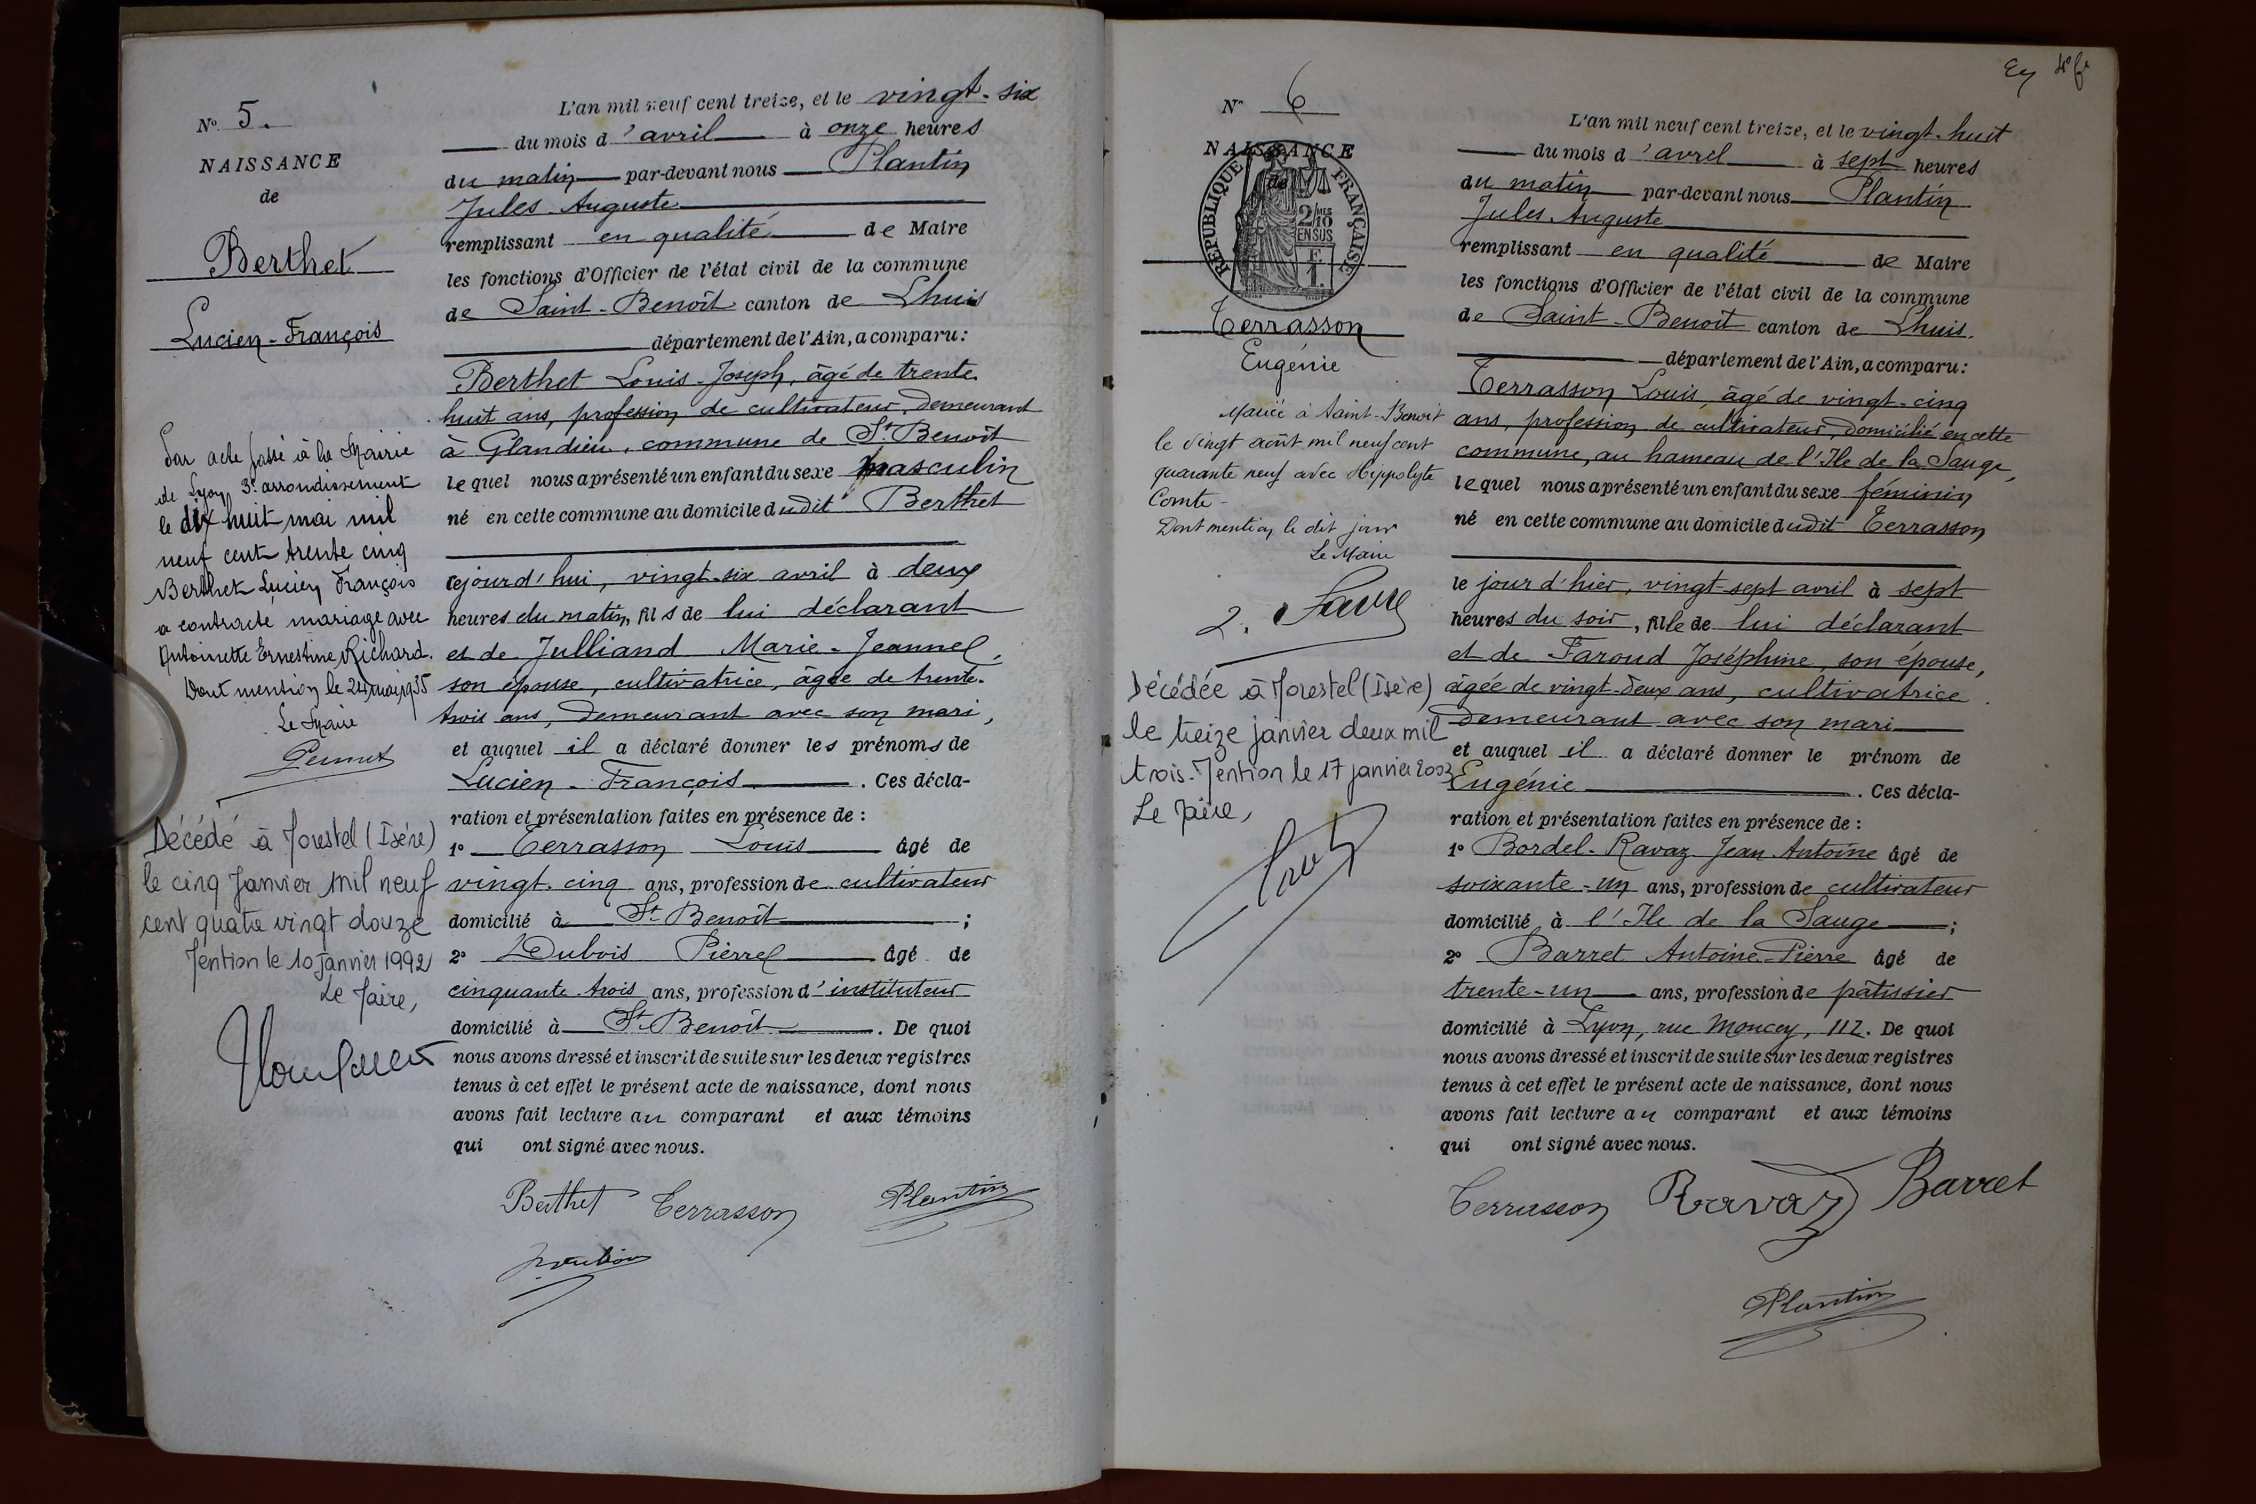 N° 5.
NAISSANCE
de
Berthet
Lucien-François
Par acte passé à la Mairie
de Lyon 3e arrondissement
le dix huit mai mil
neuf cent trente cinq
Berthet Lucien François
a contracté mariage avec
Antoinette Ernestine Richard.
Dont mention le 24 mai 1935
Le Maire
Décédé à Morestel (Isère)
le cinq Janvier mil neuf
cent quatre vingt douze
Mention le 10 Janvier 1992
Le Maire,
L'an mil neuf cent treize, et le vingt-six
du mois d'avril à onze heures
du matin par-devant nous Plantin
Jules Auguste
remplissant en qualité de Maire
les fonctions d'Officier de l'état civil de la commune
de Saint-Benoît canton de Lhuis
département de l'Ain, a comparu:
Berthet Louis-Joseph, âgé de trente
huit ans, profession de cultivateur, demeurant
à Glandieu, commune de St Benoît
lequel nous a présenté un enfant du sexe masculin
né en cette commune au domicile dudit Berthet
cejourd'hui, vingt-six avril à deux
heures du matin, fils de lui déclarant
et de Julliand Marie-Jeanne,
son épouse, cultivatrice, âgée de trente-
trois ans, demeurant avec son mari,
et auquel il a déclaré donner les prénoms de
Lucien-François. Ces décla-
ration et présentation faites en présence de :
1° Terrasson Louis âgé de
vingt-cinq ans, profession de cultivateur
domicilié à St Benoît ;
2° Dubois Pierre âgé de
cinquante-trois ans, profession d'instituteur
domicilié à St Benoît. De quoi
nous avons dressé et inscrit de suite sur les deux registres
tenus à cet effet le présent acte de naissance, dont nous
avons fait lecture au comparant et aux témoins
qui ont signé avec nous.
Berthet Terrasson Plantin
N° 6
NAISSANCE
de
REPUBLIQUE FRANÇAISE
2/10MES
EN SUS
F.
1.
Terrasson
Eugénie
Mariée à Saint-Benoit
le vingt août mil neuf cent
quarante neuf avec Hippolyte
Comte-
Dont mention le dit jour
Le Maire
Favre
Décédée à Morestel (Isère)
le treize janvier deux mil
trois. Mention le 17 janvier 2003
Le Maire,
L'an mil neuf cent treize, et le vingt-huit
du mois d'avrel à sept heures
du matin par-devant nous Plantin
Jules Auguste
remplissant en qualité de Maire
les fonctions d'Officier de l'état civil de la commune
de Saint-Benoît canton de Lhuis.
département de l'Ain, a comparu:
Terrasson Louis, âgé de vingt-cinq
ans, profession de cultivateur, domicilié en cette
commune, au hameau de l'Ile de la Sauge,
lequel nous a présenté un enfant du sexe féminin
né en cette commune au domicile dudit Terrasson
le jour d'hier, vingt-sept avril à sept
heures du soir, fille de lui déclarant
et de Faroud Joséphine, son épouse,
âgée de vingt-deux ans, cultivatrice
demeurant avec son mari
et auquel il a déclaré donner le prénom de
Eugénie. Ces décla-
ration et présentation faites en présence de :
1° Bordel-Ravaz Jean Antoine âgé de
soixante-un ans, profession de cultivateur
domicilié à l'Ile de la Sauge ;
2° Barret Antoine-Pierre âgé de
trente-un ans, profession de pâtissier
domicilié à Lyon, rue Moncey, 112. De quoi
nous avons dressé et inscrit de suite sur les deux registres
tenus à cet effet le présent acte de naissance, dont nous
avons fait lecture au comparant et aux témoins
qui ont signé avec nous.
Terrasson Ravaz Barret
Plantin